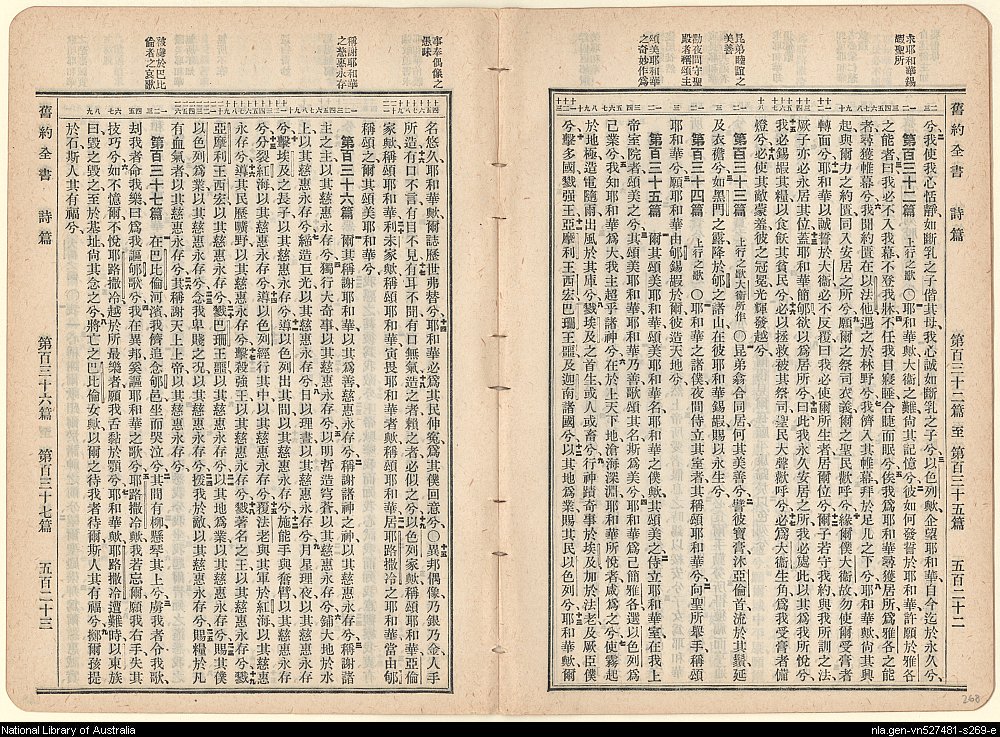 舊約全書 詩篇 第百三十二篇 至 第百三十五篇 五百二十二
求耶和華錫
嘏聖所
兄弟睦誼之
美善
勸夜間守聖
殿者稱頌主
頌美耶和華
之奇妙作為
兮我使我心恬靜如斷乳之子偕其母我心誠如斷乳之子兮以色列歟企望耶和華自今迄於永久兮
第百三十二篇 上行之歌 ○耶和華歟大衞之難尙其記憶兮彼如何發誓於耶和華許願於雅各
之能者曰我必不入我幕不登我牀不任我目寢睡合睫而眠兮俟我爲耶和華尋獲居所爲雅各之能
者尋獲帷幕兮我聞約匱在以法他遇之於林野兮我儕入其帷幕拜於足几之下兮耶和華歟尙其興
起與爾力之約匱同入安居之所兮願爾之祭司衣義爾之聖民歡呼兮緣爾僕大衞故勿使爾受膏者
轉面兮耶和華以誠誓於大衞必不反覆曰我必使爾所生者居爾位兮爾子若守我約與我所訓之法
厥子亦必永居其位蓋耶和華簡郇欲以爲居所兮曰此我永久安居之所我必處此以其爲我所悅兮
我必錫嘏其糧以食飫其貧民兮必以拯救被其祭司聖民大聲歡呼兮必爲大衞生角爲我受膏者備
燈兮必使其敵蒙羞彼之冠冕光輝發越兮
第百三十三篇 上行之歌大衞所作 ○昆弟翕合同居何其美善兮譬彼寶膏沐亞倫首流於其鬚延
及衣襜兮如黑門之露降於郇之諸山在彼耶和華錫嘏賜以永生兮
第百三十四篇 上行之歌 ○耶和華之諸僕夜間侍立其室者其稱頌耶和華兮向聖所舉手稱頌
耶和華兮願耶和華由郇錫嘏於爾彼造天地兮
第百三十五篇 爾其頌美耶和華頌美耶和華名耶和華之僕歟其頌美之侍立耶和華室在我上
帝室院者頌美之兮其頌美耶和華耶和華乃善歌頌其名斯爲美兮耶和華爲己簡雅各選以色列爲
其業兮我知耶和華爲大我主超乎諸神兮在於上天下地滄海深淵耶和華所悅者咸爲之兮使霧起
於地極造電隨雨出風於其庫兮戮埃及之首生或人或畜兮行神蹟奇事於埃及加於法老及厥臣僕
兮擊多國戮强王亞摩利王西宏巴珊王噩及迦南諸國兮以其地爲業賜其民以色列兮耶和華歟爾
事奉偶像之
愚昧
稱謝耶和華
之慈惠永存
被虜於巴比
倫者之哀歌
名悠久耶和華歟爾誌歷世弗替兮耶和華必爲其民伸寃爲其僕回意兮○異邦偶像乃銀乃金人手
所造有口不言有目不見有耳不聞有口無氣造之者賴之者必似之兮以色列家歟稱頌耶和華亞倫
家歟稱頌耶和華利未家歟稱頌耶和華寅畏耶和華者歟稱頌耶和華居耶路撒冷之耶和華當由郇
稱頌之爾其頌美耶和華兮
第百三十六篇 爾其稱謝耶和華以其爲善慈惠永存兮稱謝諸神之神以其慈惠永存兮稱謝諸
主之主以其慈惠永存兮獨行大奇事以其慈惠永存兮以明哲造穹蒼以其慈惠永存兮鋪大地於水
上以其慈惠永存兮締造巨光以其慈惠永存兮日以理晝以其慈惠永存兮月星理夜以其慈惠永存
兮擊埃及之長子以其慈惠永存兮導以色列出其間以其慈惠永存兮施能手與奮臂以其慈惠永存
兮分裂紅海以其慈惠永存兮導以色列經行其中以其慈惠永存兮覆法老與其軍於紅海以其慈惠
永存兮導其民歷曠野以其慈惠永存兮擊殺强王以其慈惠永存兮戮著名之王以其慈惠永存兮戮
亞摩利王西宏以其慈惠永存兮戮巴珊王噩以其慈惠永存兮以其地爲業以其慈惠永存兮賜其僕
以色列爲業以其慈惠永存兮念我卑賤之況以其慈惠永存兮援我於敵以其慈惠永存兮賜糧於凡
有血氣者以其慈惠永存兮其稱謝天上上帝以其慈惠永存兮
第百三十七篇 在巴比倫河濱我儕追念郇邑坐而哭泣兮其間有柳懸琴其上兮虜我者令我歌
刦我者命我樂曰爲我謳郇歌兮我在異邦奚謳耶和華之歌兮耶路撒冷歟我若忘爾願我右手失其
技巧兮如不憶爾不悅耶路撒冷越於所最樂者願我舌黏於顎兮耶和華歟耶路撒冷遭難時以東族
曰毀之毀之至於基址尙其念之兮將亡之巴比倫女歟以爾之待我者待爾斯人其有福兮擲爾孩提
於石斯人其有福兮
舊約全書 詩篇 第百三十六篇 至 第百三十七篇 五百二十三
268
National Library of Australia
nla.gen-vn527481-s269-e